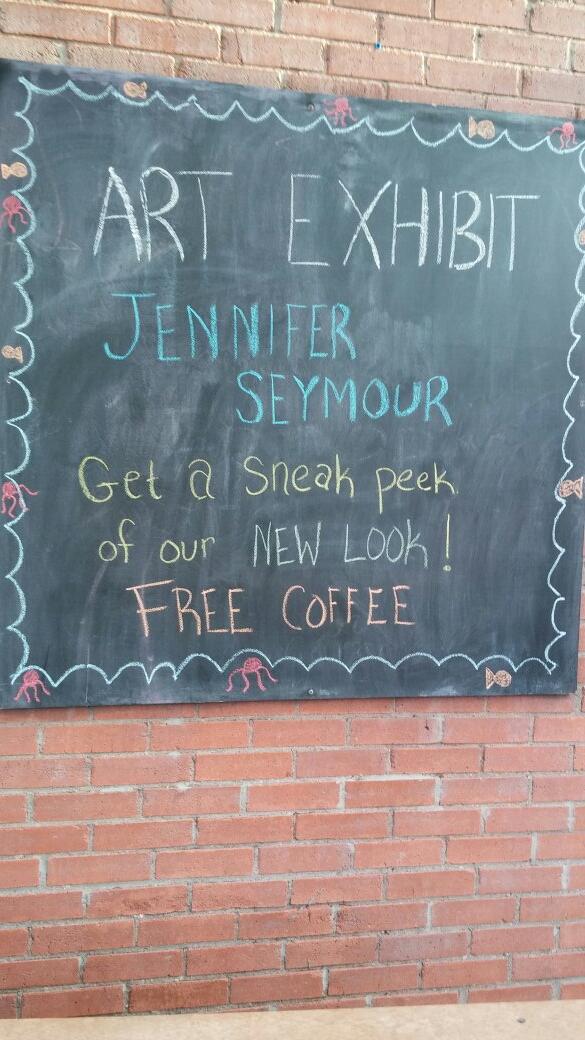 ART EXHIBIT
JENNIFER
SEYMOUR
Get a Sneak peek
of our NEW LOOK!
FREE COFFEE